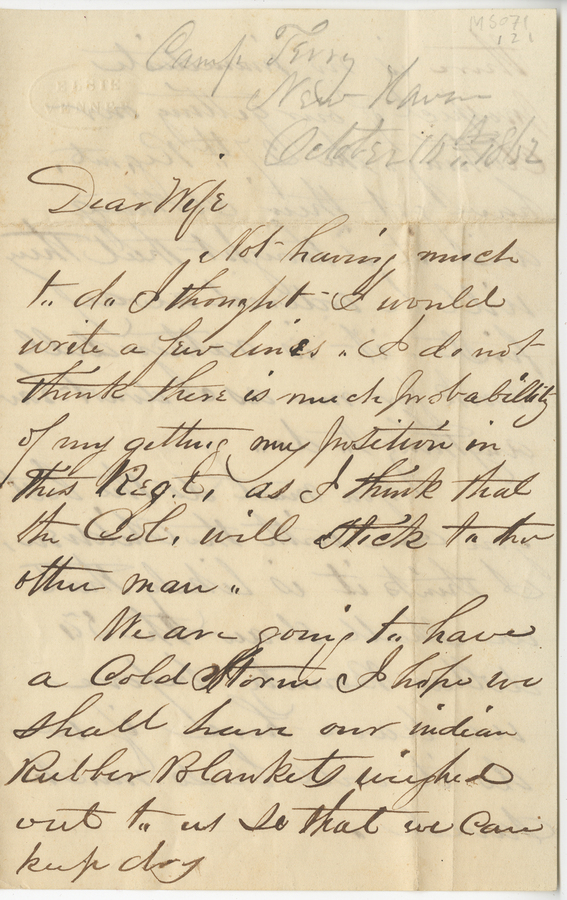 MS071
1.21
Camp Terry
New Haven
October 1862
Dear Wife
Not having much
to do I thought I would
write a few lines. I do not
think there is much probabillity
of my getting my position in
this Regt, as I think that
the Col. will stick to the
other man.
We are going to have
a Cold Storm I hope we
shall have our indian
Rubber Blankets
out to us so that we can
keep dry